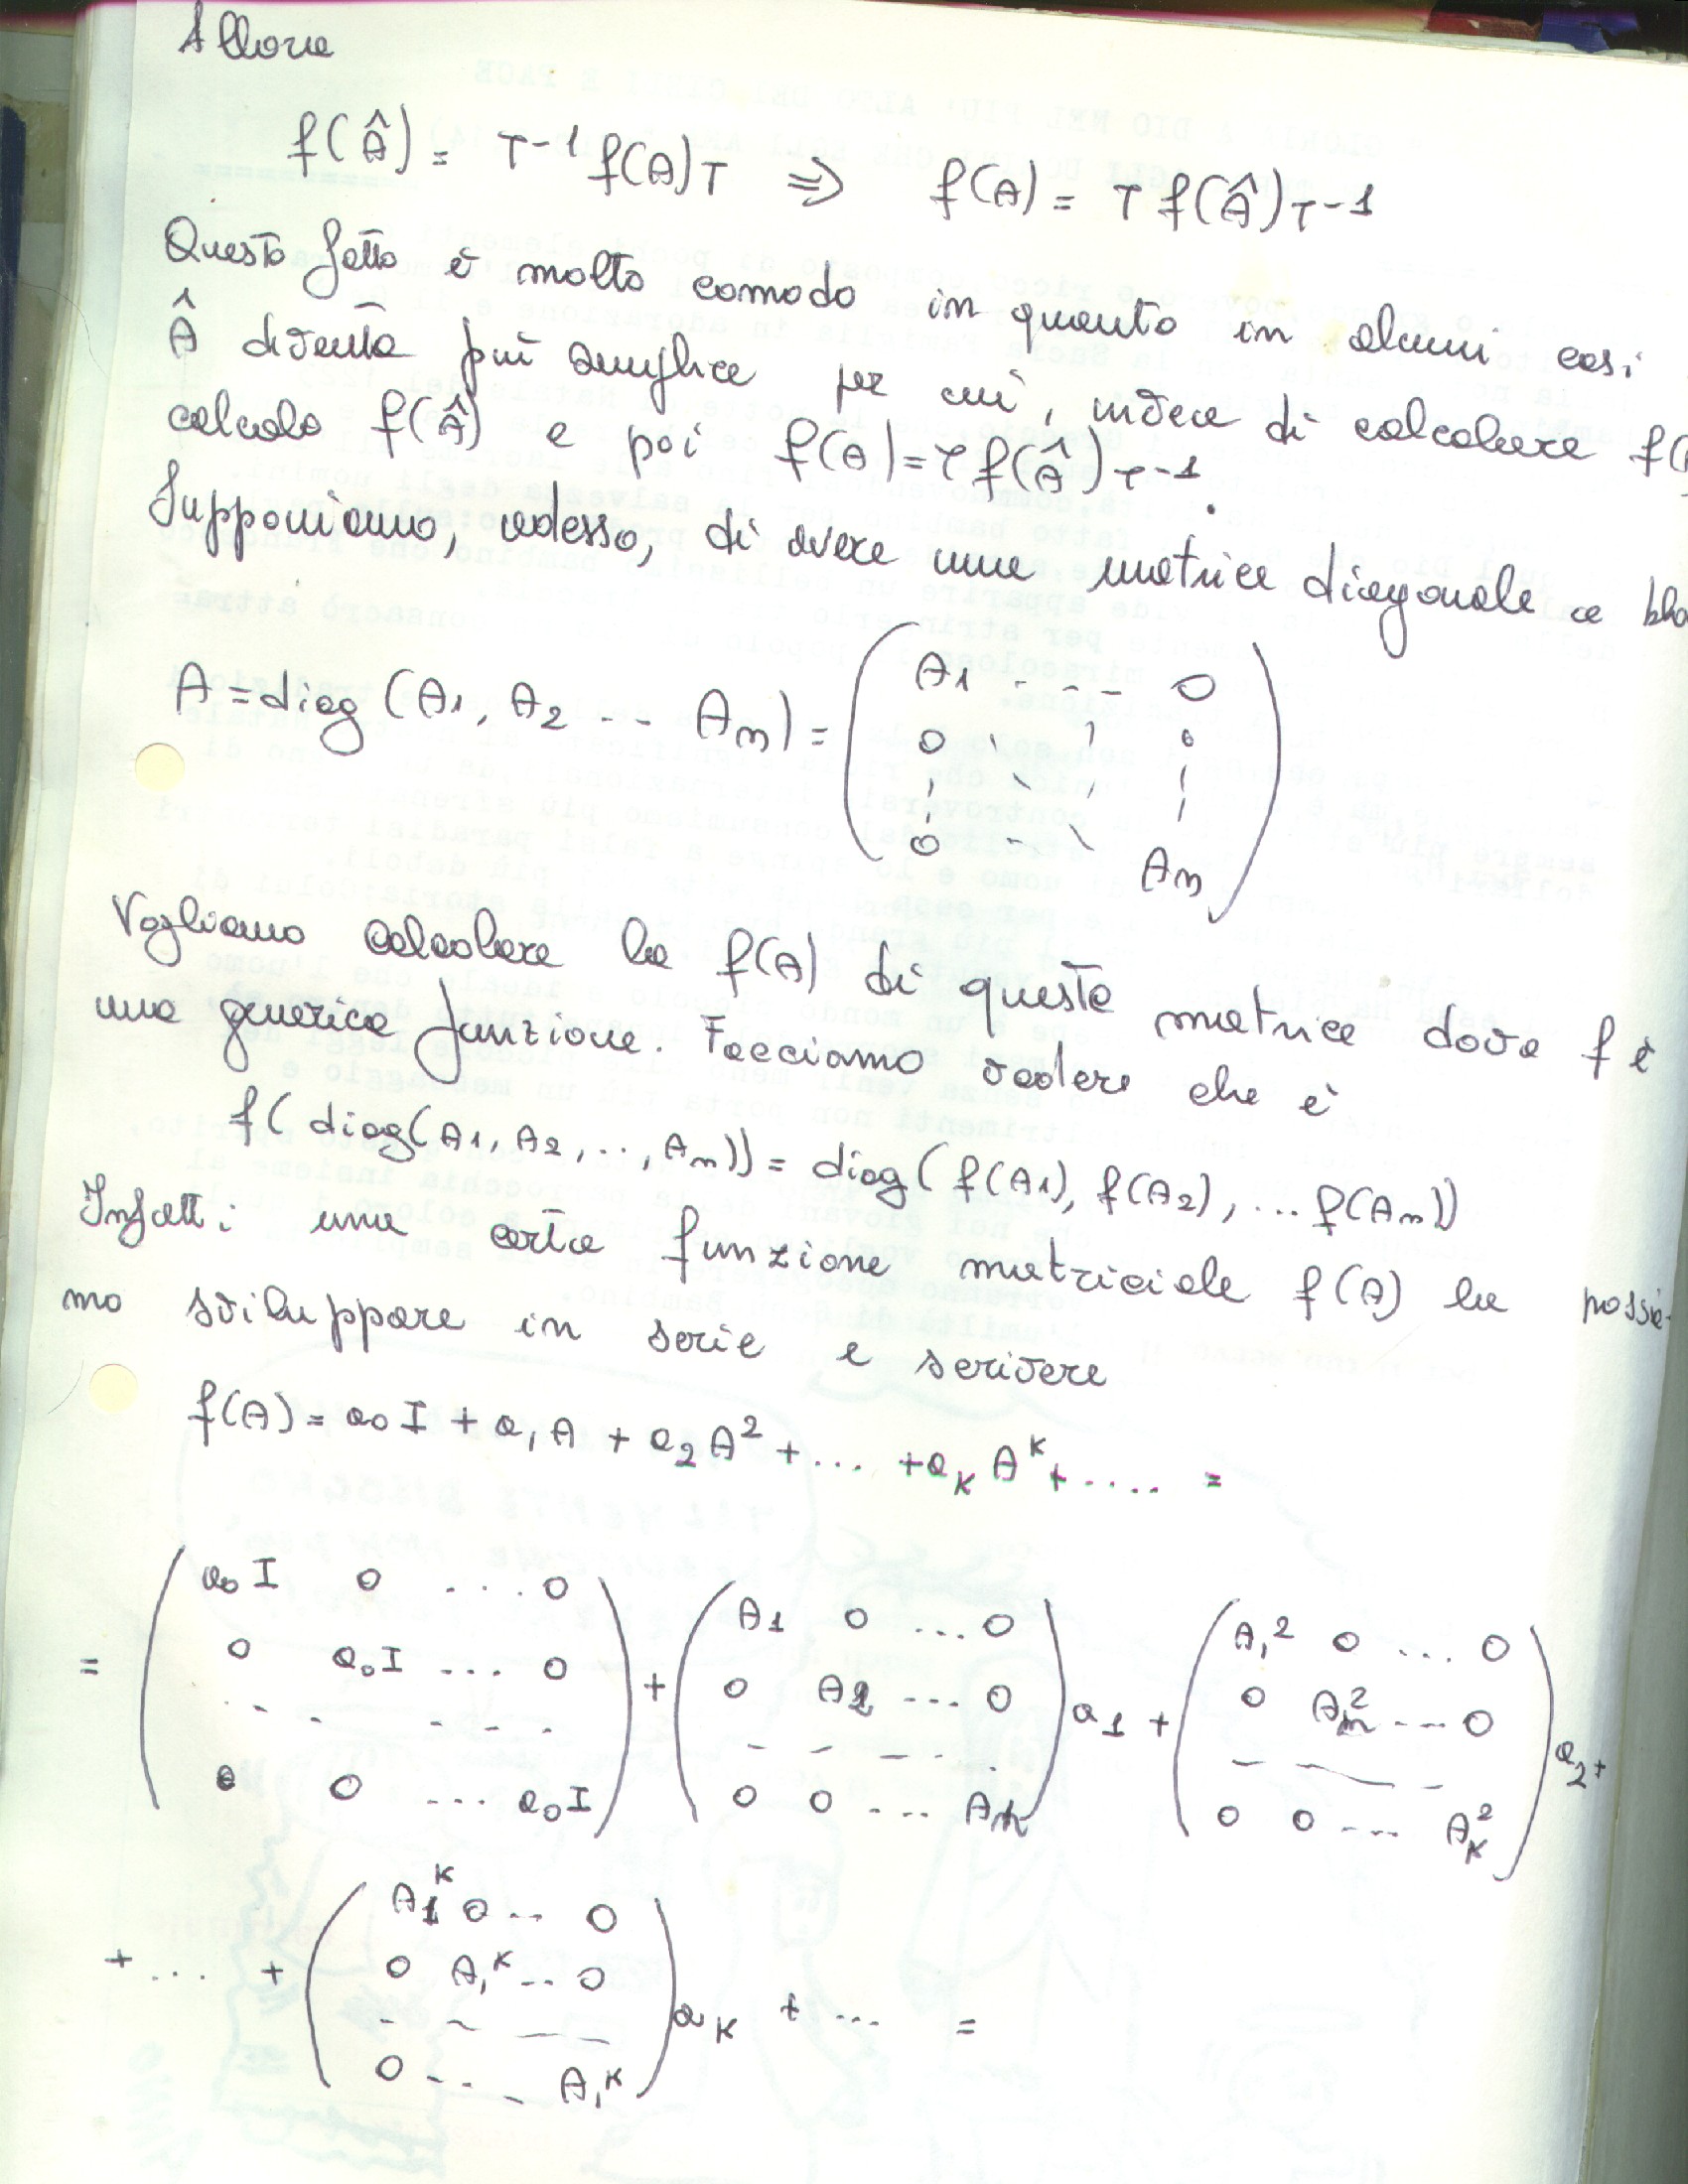 Allora
f(Â) = T-1 f(A)T ⇒ f(A) = T f(Â)T-1
Questo fatto è molto comodo in quanto in alcuni casi
Â diventa più semplice per cui, invece di calcolare f(
calcolo f(Â) e poi f(A)=T f(Â)T-1.
Supponiamo, adesso, di avere una matrice diagonale a blo
A = diag (A1, A2 ... An) = ( A1 - - - 0
0 \ ¦ 0
¦ \ ¦ ¦
0 - \ An )
Vogliamo calcolare la f(A) di questa matrice dove f è
una generica funzione. Facciamo vedere che è
f( diag(A1, A2, .., An)) = diag( f(A1), f(A2), ... f(An))
Infatti una certa funzione matriciale f(A) la possia-
mo sviluppare in serie e scrivere
f(A) = a0 I + a1 A + a2 A² + ... + aK A^K + .... =
= ( a0 I 0 ... 0 ) + ( A1 0 ... 0 ) a1 + ( A1² 0 ... 0 ) a2 +
0 a0 I ... 0 0 A2 ... 0 0 An² --- 0
- - - - - - - - - - - -
0 0 ... a0 I 0 0 .... An 0 0 .... AK²
+ ... + ( A1^K 0 -- 0 ) aK + ... =
0 A1^K -- 0
- - - -
0 - - - A1^K